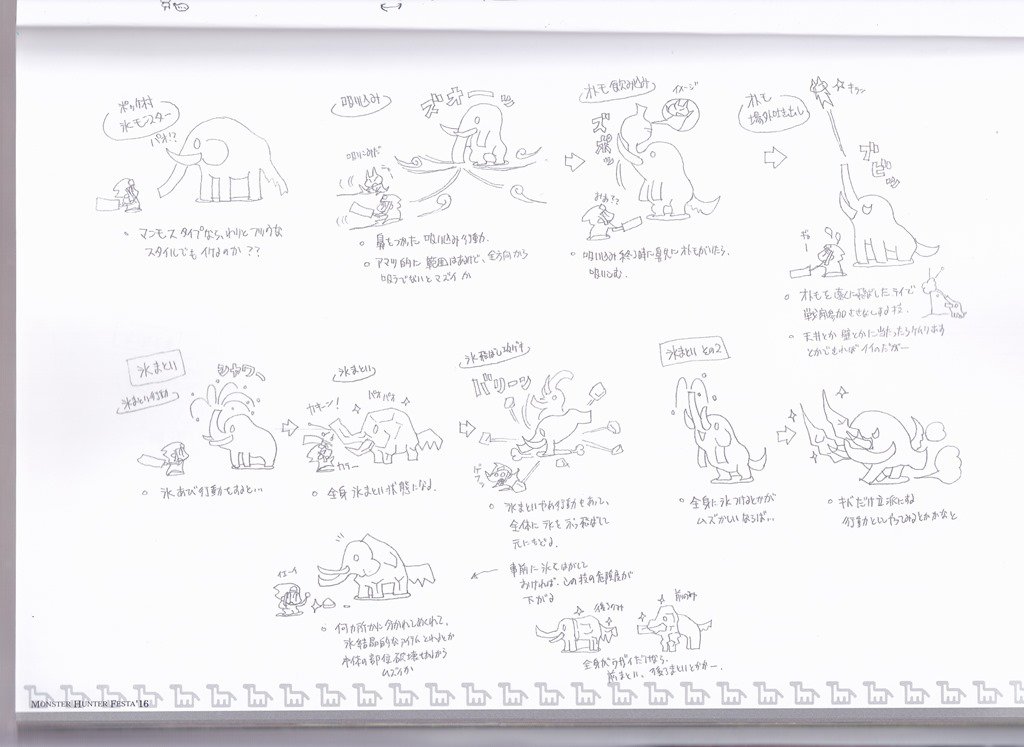 ポッケ村
氷モンスター
パオ!?
マンモスタイプなら、わりとフツウな
スタイルでもイけるのか??
吸い込み
ズオーッ
吸い込みだ
鼻をつかった吸い込み行動。
アマツ的に範囲はあるけど、全方向から
吸うでないとマズイか
オトモ飲み込み
イメージ
ズボッ
吸い込み終了時に鼻先にオトモがいたら、
吸い込む。
オトモ
場外吐き出し
キラン
ズビッ
オトモを遠くに飛ばしたテイで
天井とか壁とかに当ったらケムリ出す
とかでもればイイのだがー
氷まとい
氷まとい行動
シャワー
氷あび行動をすると…
氷まとい
カキーン!
パオパオ
全身氷まとい状態になる。
氷飛ばし攻げき
バリーン
氷まといやめ行動もあって、
全体に氷をぶっ飛ばして
元にもどる。
氷まといその2
全身に氷つけるとかが
ムズかしいならば…
キバだけ立派にね
行動といしやってみるとかかなと
事前に氷をはがして
おければ、この技の危険度が
下がる
何カ所かに分かれしめくれて、
氷結晶的なアイテムとれるとか
本体の部位破壊せいから
ムズイか
後ろのみ
前のみ
全身がラザイだけなら、
前まとい、後ろまといとかかー。
MONSTER HUNTER FESTA'16